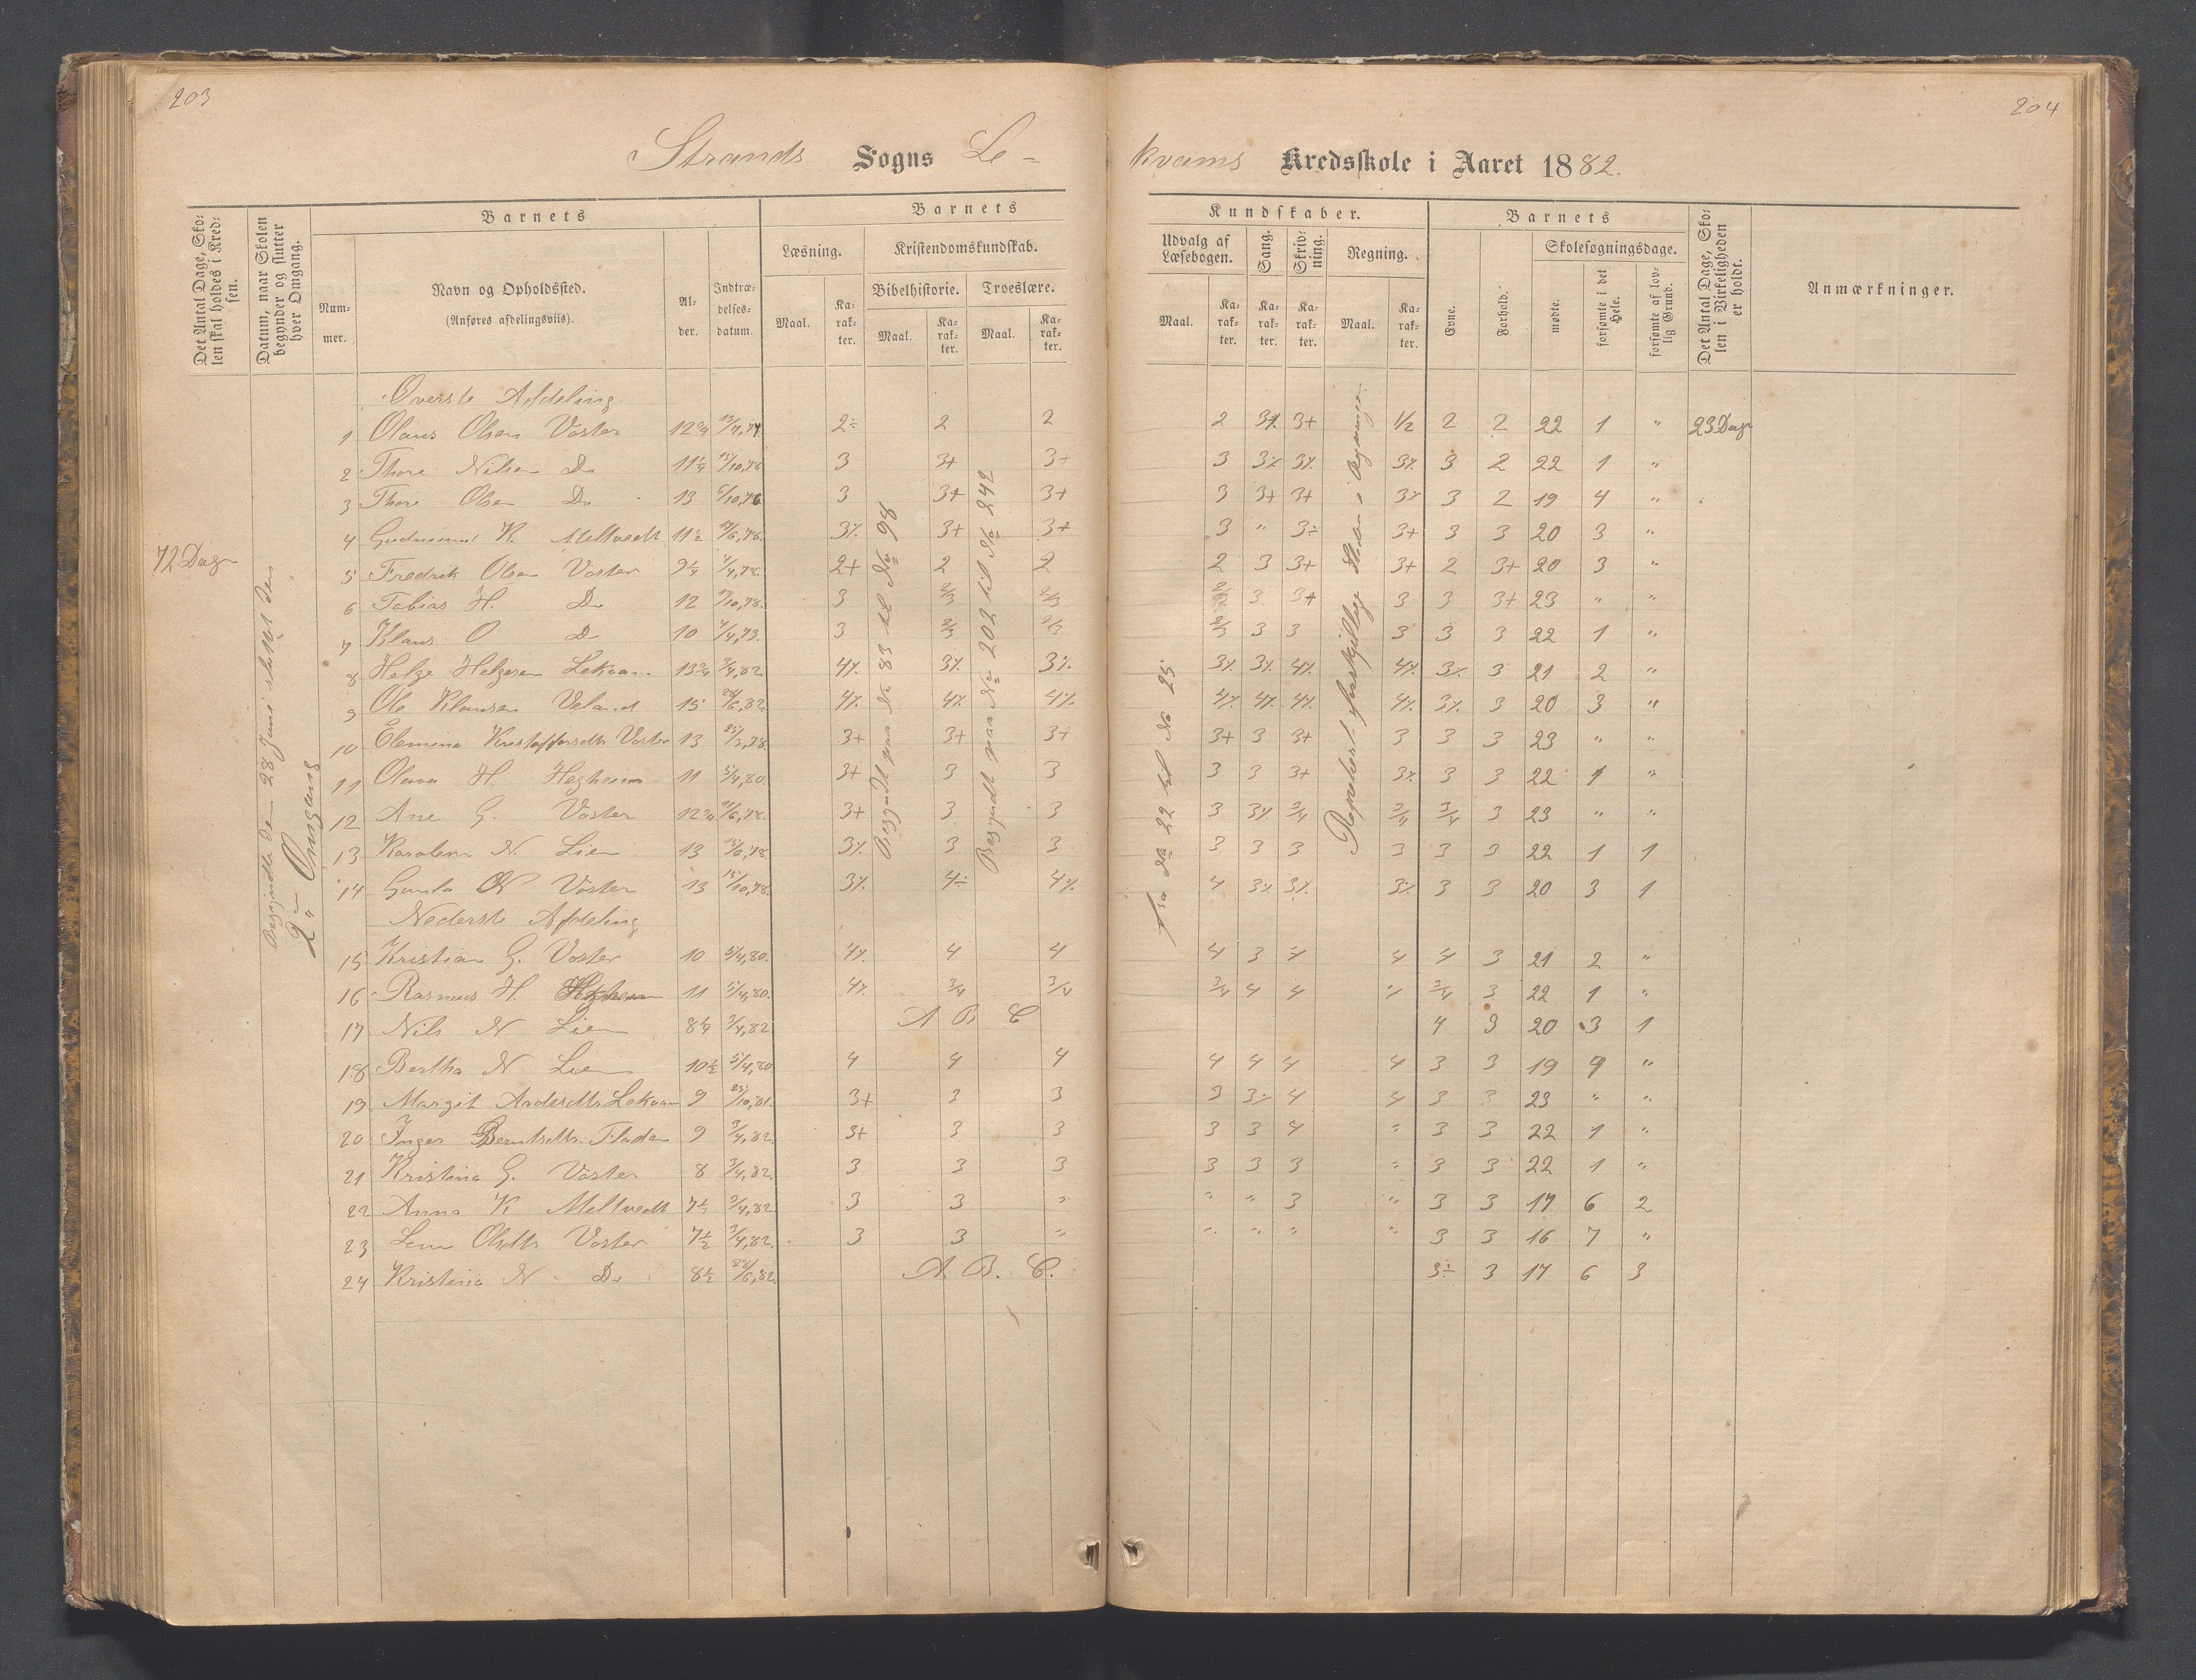 203
204
Strands Sogns Le-
kvams Kredsskole i Aaret 1882.
Det Antal Dage, Skolen skal holdes i Kredsen.
Datum, naar Skolen begynder og slutter hver Omgang.
Barnets
Nummer.
Navn og Opholdssted.
(Anføres afdelingsviis).
Alder.
Indtrædelsesdatum.
Barnets
Læsning.
Maal.
Karakter.
Kristendomskundskab.
Bibelhistorie.
Maal.
Karakter.
Troeslære.
Maal.
Karakter.
Kundskaber.
Udvalg af Læsebogen.
Maal.
Karakter.
Sang.
Karakter.
Skrivning.
Karakter.
Regning.
Maal.
Karakter.
Barnets
Evne.
Forhold.
Skolesøgningsdage.
mødte.
forsømte i det Hele.
forsømte af lovlig Grund.
Det Antal Dage, Skolen i Virkeligheden er holdt.
Anmærkninger.
72 Dage
2den Omgang
Øverste Afdeling
1 Olaus Olsen Voster 12 3/4 2÷ 2 2 2 3+ 2 2 22 1 " 23 Dage
2 Thore Nilsen Do 11 1/4 15/10,78 3 3+ 3+ 3 3% 3% 3% 3 2 22 1 "
3 Thore Olsen Do 13 6/10,76 3 3+ 3+ 3 3+ 3+ 3% 3 2 19 4 "
4 Gudmund K Meltvedt 11 1/2 3% 3+ 3+ 3 " 3÷ 3+ 3 3 20 3 "
5 Fredrik Olsen Voster 9 1/4 4/4,78. 2+ 2 2 2 3 3+ 3+ 2 3+ 20 3 "
6 Tobias H. Do 12 3 2/3 2/3 3 3+ 3 3 3+ 23 " "
7 Klaus O Do 10 4/4,79. 3 2/3 2/3 2/3 3 3 3 3 3 22 1 "
8 Helge Helgesen Lekvam 13 3/4 3/4,82 4% 3% 3% 3% 3% 4% 4% 3% 3 21 2 "
9 Ole Klausen Veland 15 28/6,82 4% 4% 4% 4% 4% 4% 4% 3% 3 20 3 "
10 Elemine Kristoffersdtr Voster 13 25/3,78. 3+ 3+ 3+ 3+ 3 3+ 3 3 3 23 " "
11 Olava H. Hegheim 11 5/4,80. 3+ 3 3 3 3 3+ 3% 3 3 22 1 "
12 Ane G. Voster 12 3/4 3+ 3 3 3 3% 3/4 3/4 3/4 3 23 " "
13 Karolene N. Lien 13 3% 3 3 3 3 3 3 3 3 22 1 1
14 Gunla N Voster 13 15/10,78. 3% 4÷ 4% 4 3% 3% 3% 3 3 20 3 1
Nederste Afdeling
15 Kristian G. Voster 10 5/4,80. 4% 4 4 4 3 4 4 4 3 21 2 "
16 Rasmus H. Hegheim 11 5/4,80. 4% 3/4 3/4 3/4 4 4 " 3/4 3 22 1 "
17 Nils N Lien 8 1/4 3/4,82 A B C 4 3 20 3 1
18 Bertha N Lien 10 1/2 5/4,80 4 4 4 4 4 4 4 3 3 19 4 "
19 Margit Andersdtr Lekvam 9 25/10,81. 3+ 3 3 3 3% 4 4 3 3 23 " "
20 Inger Berntsdtr 9 3/4,82. 3+ 3 3 3 3 4 " 3 3 22 1 "
21 Kristina G. Voster 8 3/4,82. 3 3 3 3 3 3 " 3 3 22 1 "
22 Anna K Meltvedt 7 1/2 3/4,82. 3 3 " " " 3 " 3 3 17 6 2
23 Lene Olsdtr Voster 7 1/2 3/4,82. 3 3 " " " " " 3 3 16 7 "
24 Kristina N Do 8 1/2 28/6,82. A. B. C. 3÷ 3 17 6 3
Begyndte den 28 Juni sluttet den
Begyndt paa No 83 til No 98
Begyndt paa No 202 til No 242
Fra No 22 til No 25
Repeteret forskjellige Steder i Regningen.